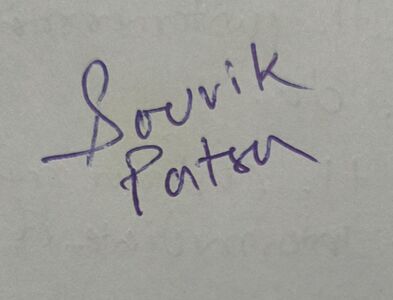 Sourik
Patsa